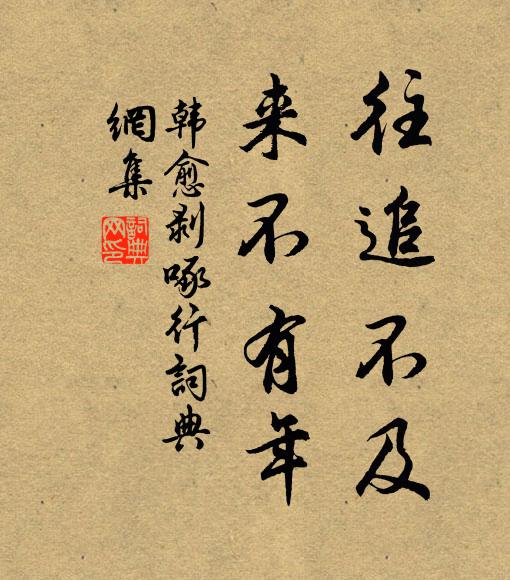 往追不及
来不有年
韩愈剥啄行詞典
網集
詞典
网印